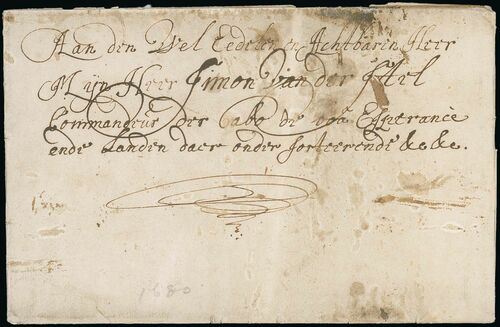 Aan den Wel Eedelen en Achtbaren Heer
Mijn Heer Simon Van der Stel
Commandeur der Cabo de Esperance
ende Landen daer onder sorteerende &c &c.
1680